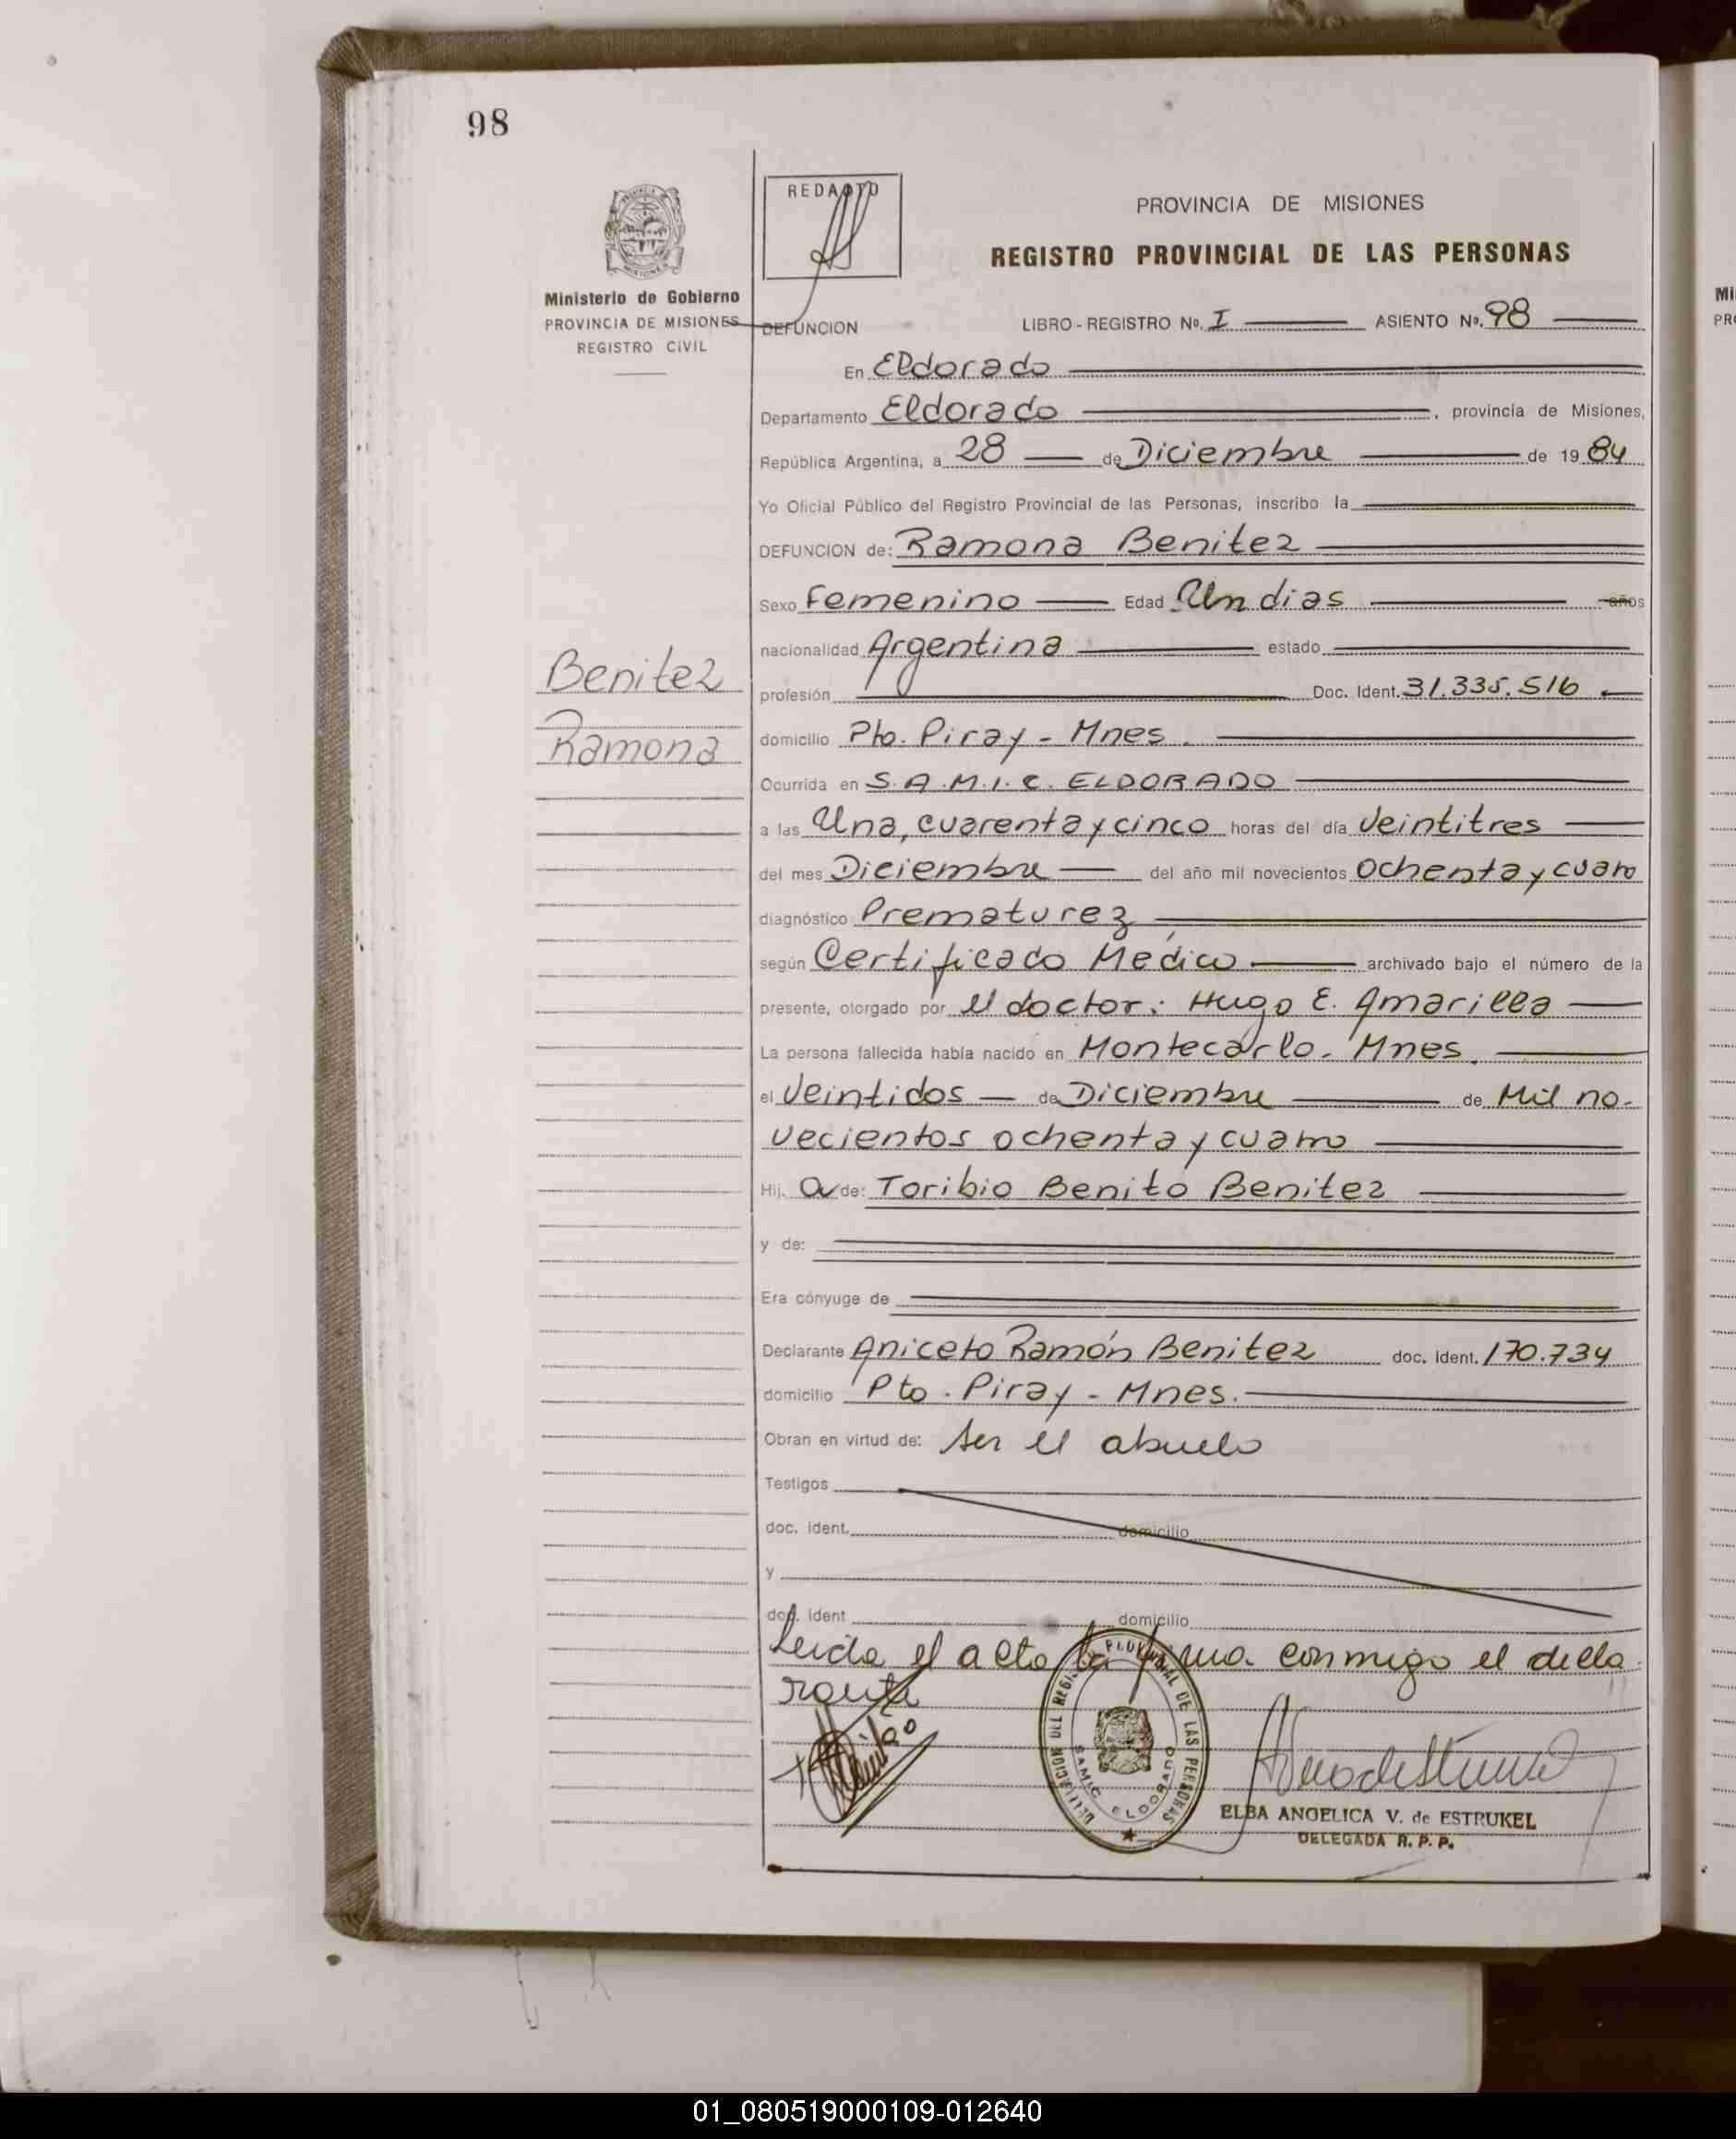 98
REDACTO
PROVINCIA DE MISIONES
REGISTRO PROVINCIAL DE LAS PERSONAS
Ministerio de Gobierno
PROVINCIA DE MISIONES
REGISTRO CIVIL
DEFUNCION LIBRO - REGISTRO Nº. I ASIENTO Nº. 98
En Eldorado
Departamento Eldorado, provincia de Misiones,
República Argentina, a 28 de Diciembre de 1984
Yo Oficial Público del Registro Provincial de las Personas, inscribo la
DEFUNCION de: Ramona Benitez
Sexo Femenino Edad Un dias años
nacionalidad Argentina estado
Benitez
profesión Doc. Ident. 31.335.516
Ramona
domicilio Pto. Piray - Mnes.
Ocurrida en S.A.M.I.C. ELDORADO
a las Una, cuarenta y cinco horas del día Veintitres
del mes Diciembre del año mil novecientos Ochenta y cuatro
diagnóstico Prematurez
según Certificado Médico archivado bajo el número de la
presente, otorgado por el doctor: Hugo E. Amarilla
La persona fallecida había nacido en Montecarlo. Mnes.
el Veintidos de Diciembre de Mil no-
vecientos ochenta y cuatro
Hij. a de: Toribio Benito Benitez
y de:
Era cónyuge de
Declarante Aniceto Ramón Benitez doc. ident. 170.734
domicilio Pto. Piray - Mnes.
Obran en virtud de: ser el abuelo
Testigos
doc. ident. domicilio
y
doc. ident domicilio
Leida el acta la firma conmigo el decla
rante
DELEGACION DEL REGISTRO PROVINCIAL DE LAS PERSONAS
SAMIC ELDORADO
ELBA ANGELICA V. de ESTRUKEL
DELEGADA R. P. P.
01_080519000109-012640